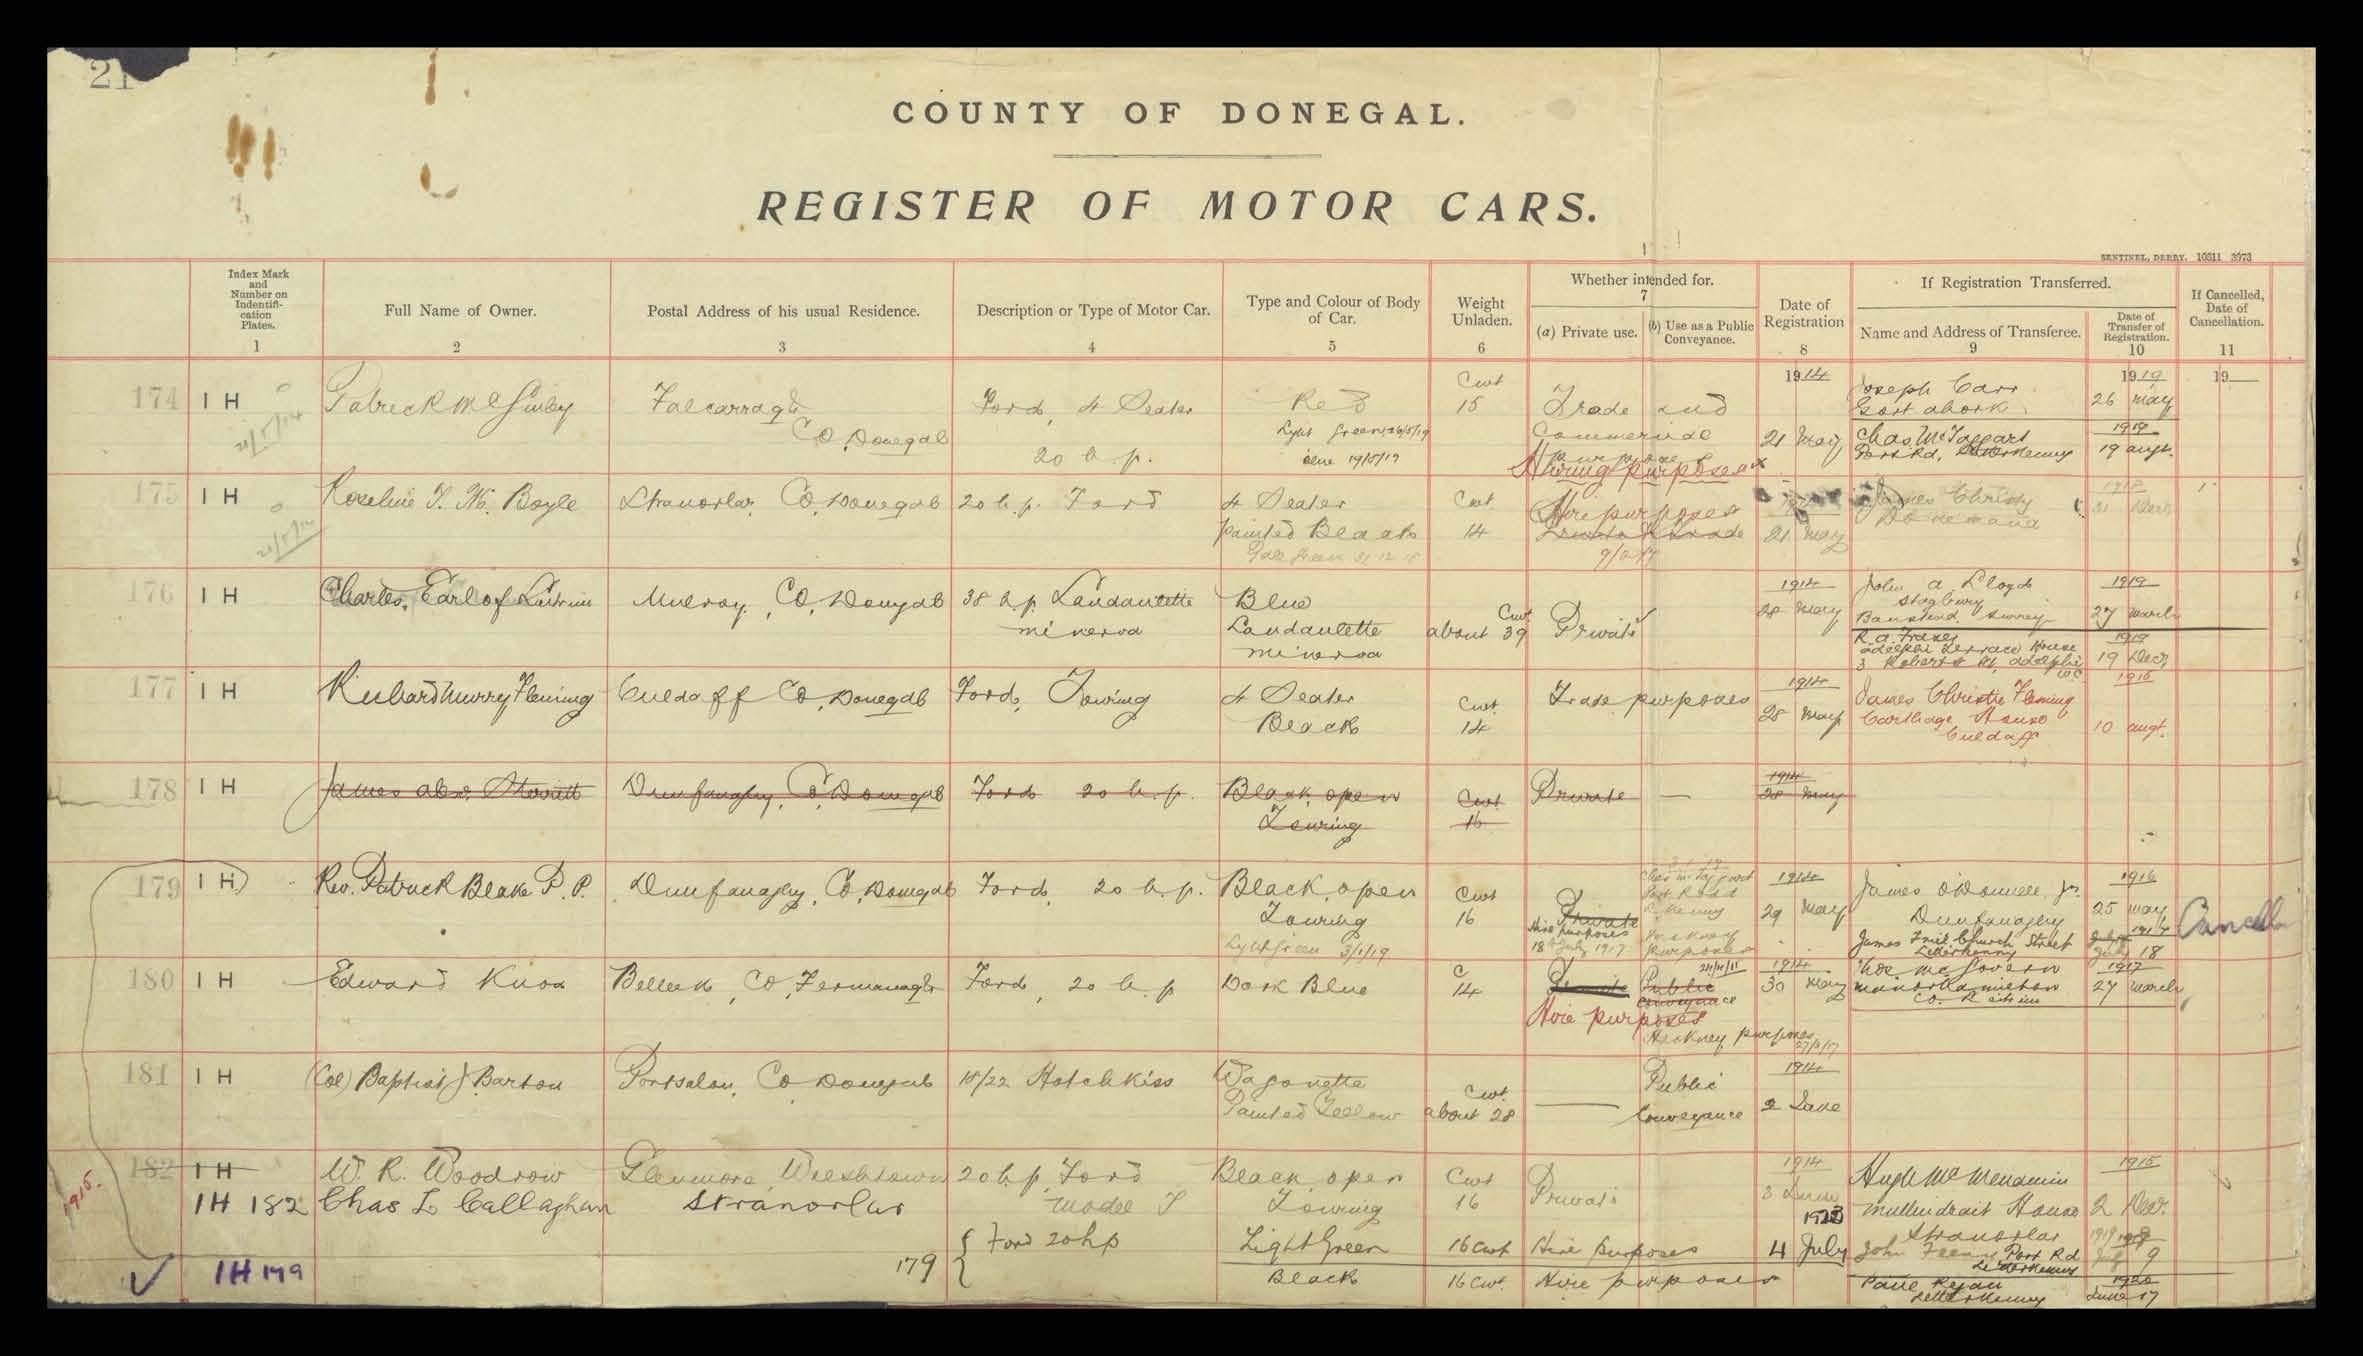 21
COUNTY OF DONEGAL.
REGISTER OF MOTOR CARS.
SENTINEL, DERRY. 10311 3973
Index Mark and Number on Indentifi-cation Plates.
1
Full Name of Owner.
2
Postal Address of his usual Residence.
3
Description or Type of Motor Car.
4
Type and Colour of Body of Car.
5
Weight Unladen.
6
Whether intended for.
7
(a) Private use.
(b) Use as a Public Conveyance.
Date of Registration
8
If Registration Transferred.
Name and Address of Transferee.
9
Date of Transfer of Registration.
10
If Cancelled, Date of Cancellation.
11
174 I H
21/5/14
Patrick McGinley
Falcarragh
Co. Donegal
Ford, 4 Seater
20 h.p.
Red
Light Green 26/5/19
blue 19/8/19
Cwt
15
Trade and
Commercial
purposes
Hiring purposes
1914
21 May
Joseph Carr
Gortahork
1919
26 May
Chas McTaggart
Port Rd, Letterkenny
1919
19 augt.
19
175 I H
21/5/14
Roseline T. W. Boyle
Stranorlar, Co. Donegal
20 h.p. Ford
4 Seater
painted Black
31 12 18
Cwt.
14
Hire purposes
Private & Trade
21 May
James Christy
1918
31 Decr
176 I H
Charles, Earl of Leitrim
Mulroy, Co. Donegal
38 h.p. Landaulette
minerva
Blue
Landaulette
minerva
Cwt.
about 39
Private
1914
28 May
John A Lloyd
Stagbury
Banstead Surrey
1919
27 March
R. A. Fraser
Adelphi Terrace House
3 Robert St, Adelphi
W.C
1919
19 Decr
177 I H
Richard Murry Fleming
Culdaff Co. Donegal
Ford, Touring
4 Seater
Black
Cwt.
14
Trade purposes
1914
28 May
James Christie Fleming
Carthage House
Culdaff
1916
10 augt.
178 I H
James Alex. Sterritt
Dunfanaghy, Co. Donegal
Ford 20 h.p.
Black, open
Touring
Cwt
16
Private —
1914
28 May
179 I H
Rev. Patrick Blake P.P.
Dunfanaghy, Co. Donegal
Ford, 20 h.p.
Black, open
Touring
Light Green 3/1/19
Cwt
16
Private
Hire purposes
18th July 1917
Chas McTaggart
Port Road
L.Kenny
Hackney
purposes
1914
29 May
James O'Donnell, Jr.
Dunfanaghy
1916
25 May
James Friel Church Street
Letterkenny
1917
July 18
Cancelled
180 I H
Edward Knox
Belleek, Co. Fermanagh
Ford, 20 h.p
Dark Blue
C
14
Private
Public
Conveyance
Hire purposes
Hackney purposes
27/3/17
1914
30 May
Thos McGovern
Manorhamilton
Co. Leitrim
1917
27 March
181 I H
(Col) Baptist J. Barton
Portsalon, Co. Donegal
18/22 Hotchkiss
Wagonette
Painted Yellow
Cwt.
about 28
Public
Conveyance
1914
2 June
182 I H
W. R. Woodrow
Glenmore, Welshtown
20 h.p. Ford
Model T
Black, open
Touring
Cwt
16
Private
1914
3 June
Hugh McMenamin
Mullindrait House
Stranorlar
1915
2 Novr.
1915.
IH 182 Chas L Callaghan
Stranorlar
Ford 20hp
Light Green
16 Cwt
Hire purposes
4 July
John Feeny Port Rd
Letterkenny
1919
July 9
IH 179
179
Black
16 Cwt.
Hire purposes
Letterkenny
1920
June 17